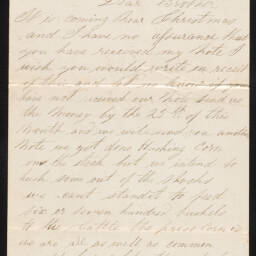 Dear Brother
It is coming near Christmas
and I have no assurance that
you have received my Note I
wish you would write on receit
of this and let us know if you
have not received our Note send us
the Money by the 25th of this
Month and we will send you another
Note we got done Husking Corn
on the stock but we intend to
husk some out of the shocks
we cant stand it to feed
six or seven hundred bushels
to the cattle the price corn is
we are all as well as common